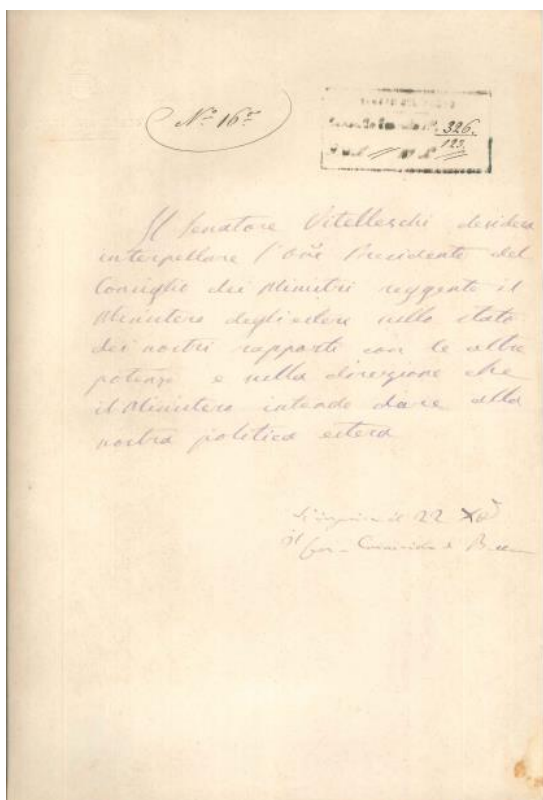 Nº 16º
326.
123.
Il Senatore Vitelleschi desidera
interpellare l'onle Presidente del
Consiglio dei Ministri reggente il
Ministero degli esteri sullo stato
dei nostri rapporti con le altre
potenze e sulla direzione che
il Ministero intende dare alla
nostra politica estera
il 22